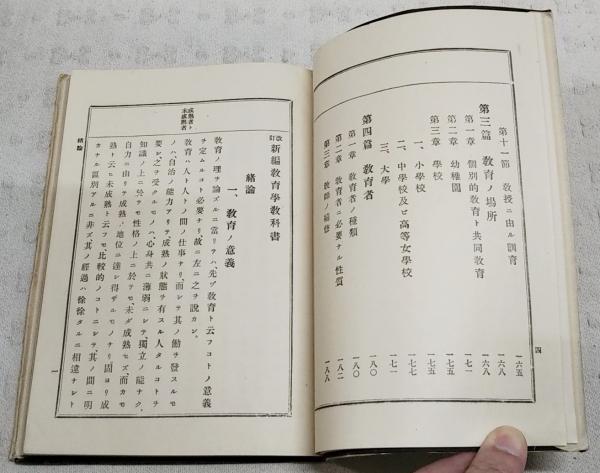 第十一節 教授ニ由ル訓育 一六五
第三篇 教育ノ場所 一六八
第一章 個別的教育ト共同教育 一六八
第二章 幼稚園 一七一
第三章 學校 一七五
一、小學校 一七五
二、中學校及ビ高等女學校 一七七
三、大學 一七七
第四篇 教育者 一八〇
第一章 教育者ノ種類 一八〇
第二章 教育者ニ必要ナル性質 一八二
第三章 教師ノ補修 一八八
四
改訂 新編教育學敎科書
緒論
一、教育ノ意義
教育ノ理ヲ論ズルニ當リテハ、先ヅ教育ト云フコトノ意義
ヲ定ムルコト必要ナリ、故ニ左ニ之ヲ說カン。
教育ハ人ト人トノ間ノ仕事ナリ、而シテ其ノ働ヲ發スルモ
ノハ自治ノ能力アリテ成熟ノ狀態ヲ有スル人タルコトヲ
要シ、之ヲ受クルモノハ、心身共ニ薄弱ニシテ、獨立ノ能ナク、
知識ノ上ニ於テモ性格ノ上ニ於テモ、未ダ成熟セズ、而カモ
自力ニ由リテ成熟ノ地位ニ達シ得ザルモノナリ、固ヨリ成
熟ト云ヒ未成熟ト云フモ、比較的ノコトニシテ其ノ間ニ明
カナル區別アルニ非ズ、其ノ經過ハ徐徐タルニ相違ナシト
成熟者ト
未成熟者
緒論
一